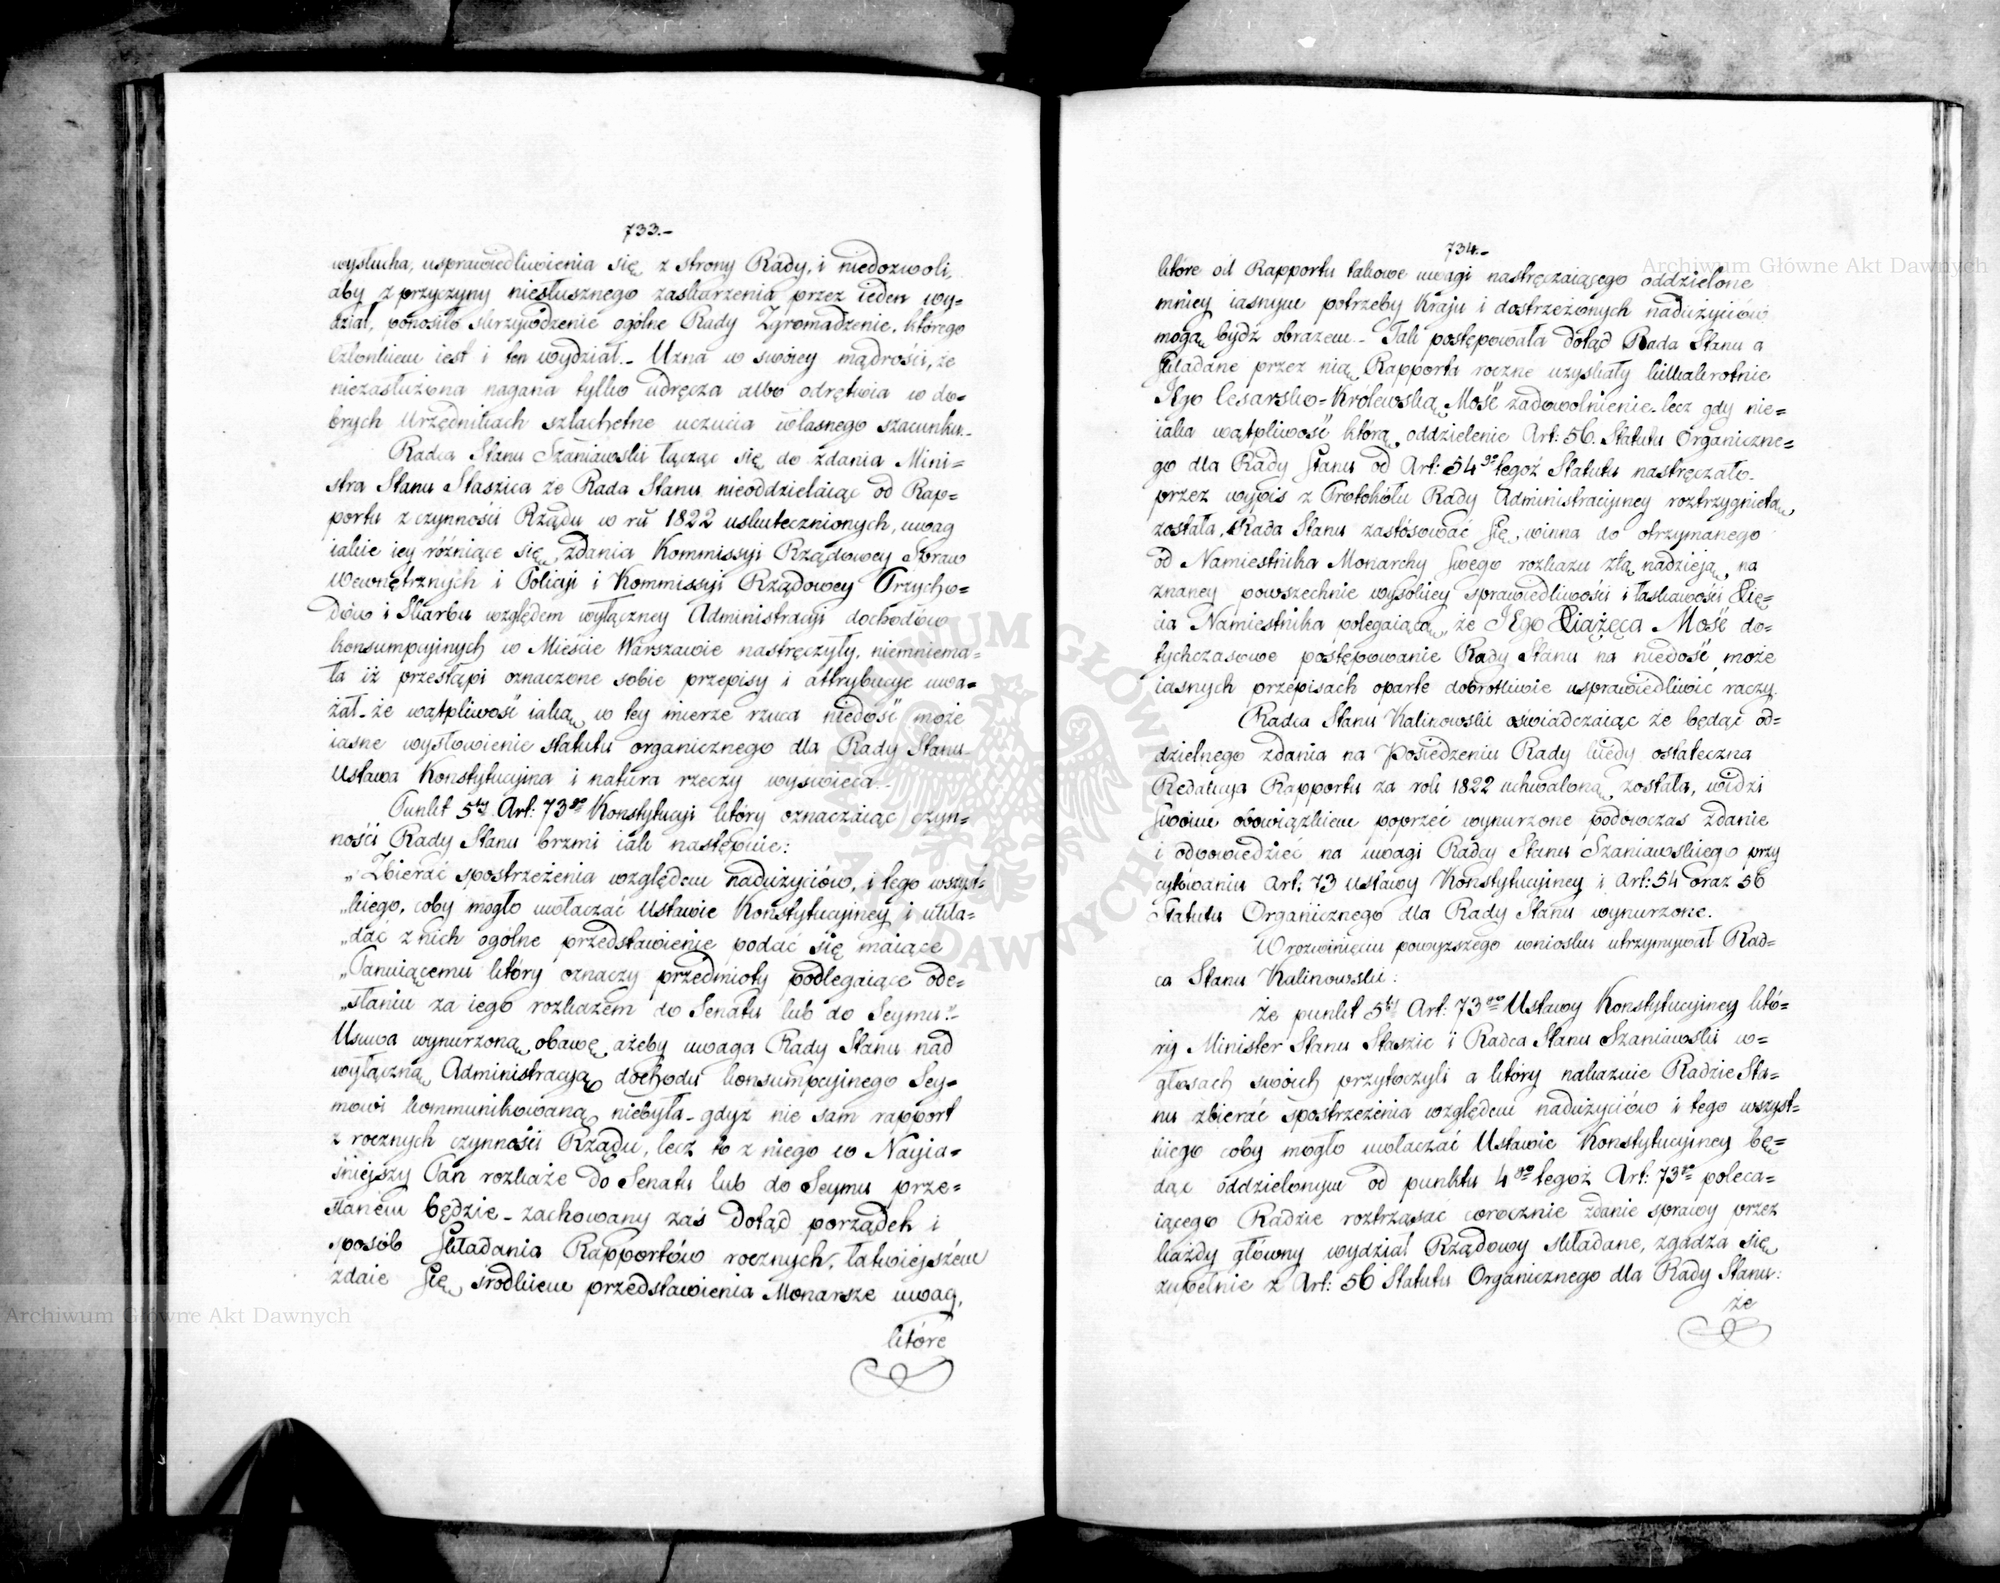 733.-
wysłucha, usprawiedliwienia się z strony Rady, i niedozwoli,
aby z przyczyny niesłusznego zaskarzenia przez ieden wy=
dział, ponosiło skrzywdzenie ogólne Rady Zgromadzenie, którego
Członkiem iest i ten wydział.- Uzna w swóiey mądrości, że
niezasłużona nagana tylko udręcza albo odrętwia w do=
brych Urzędnikach szlachetne uczucia własnego szacunku.-
Radca Stanu Szaniawski łącząc się do zdania Mini=
stra Stanu Staszica że Rada Stanu nieoddzielaiąc od Rap=
portu z czynności Rządu w rŭ 1822 uskutecznionych, uwag
iakie iey różniące się zdania Kommissyi Rządowey Spraw
Wewnętrznych i Policyi i Kommissyi Rządowey Przycho=
dów i Skarbu względem wyłączney Administracyi dochodów
konsumpcyinych w Mieście Warszawie nastręczyły, niemniema=
ła iż przestąpi oznaczone sobie przepisy i attrybucye uwa=
żał że wątpliwość iaką w tey mierze rzuca niedość może
iasne wysłowienie statutu organicznego dla Rady Stanu
Ustawa Konstytucyina i natura rzeczy wyświeca.-
Punkt 5ty Art: 73go Konstytucyi który oznaczaiąc czyn=
ności Rady Stanu brzmi iak następuie:
„Zbierać spostrzeżenia względem nadużyciów, i tego wszyst=
„kiego, coby mogło uwłaczać Ustawie Konstytucyiney i ukła=
„dać z nich ogólne przedstawienie podać się maiące
„Panuiącemu który oznaczy przedmioty podlegaiące ode=
„słaniu za iego rozkazem do Senatu lub do Seymu."-
Usuwa wynurzoną obawę ażeby uwaga Rady Stanu nad
wyłączną Administracyą dochodu konsumpcyinego Sey=
mowi kommunikowaną niebyła- gdyż nie sam rapport
z rocznych czynności Rządu, lecz to z niego co Nayia=
śnieyszy Pan rozkaże do Senatu lub do Seymu prze=
słanem będzie- zachowany zaś dotąd porządek i
sposób składania Rapportów rocznych, łatwieyszém
zdaie się środkiem przedstawienia Monarsze uwag,
które
734.-
które od Rapportu takowe uwagi nastręczaiącego oddzielone
mniey iasnym potrzeby Kraju i dostrzeżonych nadużyciów
mogą bydź obrazem.- Tak postępowała dotąd Rada Stanu a
składane przez nią Rapporta roczne uzyskały kilkakrotnie
Jego Cesarsko-Królewską Mość zadowolnienie. lecz gdy nie=
iaka wątpliwość którą oddzielenie Art: 56. Statutu Organiczne=
go dla Rady Stanu od Art: 54go tegoż Statutu nastręczało
przez wypis z Protokółu Rady Administracyiney roztrzygnięta
została, Rada Stanu zastósować się winna do otrzymanego
od Namiestnika Monarchy swego rozkazu z tą nadzieją, na
znaney powszechnie wysokiey sprawiedliwości i łaskawości Xię=
cia Namiestnika polegaiącą, że JEgo Xiążęca Mość do=
tychczasowe postępowanie Rady Stanu na niedość może
iasnych przepisach oparte dobrotliwie usprawiedliwić raczy.
Radca Stanu Kalinowski oświadczaiąc że będąc od=
dzielnego zdania na Posiedzeniu Rady kiedy ostateczna
Redakcya Rapportu za rok 1822 uchwaloną została, widzi
swoim obowiązkiem poprzeć wynurzone podówczas zdanie
i odpowiedzieć na uwagi Radcy Stanu Szaniawskiego przy
cytówaniu Art: 73 Ustawy Konstytucyiney i Art: 54 oraz 56
Statutu Organicznego dla Rady Stanu wynurzone.
W rozwinięciu powyższego wniosku utrzymywał Rad=
ca Stanu Kalinowski:
Że punkt 5ty Art: 73go Ustawy Konstytucyiney któ=
ry Minister Stanu Staszic i Radca Stanu Szaniawski w=
głosach swóich przytoczyli a który nakazuie Radzie Sta=
nu zbierać spostrzeżenia względem nadużyciów i tego wszyst=
kiego coby mogło uwłaczać Ustawie Konstytucyiney bę=
dąc oddzielonym od punktu 4go tegoż Art: 73go poleca=
iącego Radzie roztrząsać corocznie zdanie sprawy przez
każdy główny wydział Rządowy składane, zgadza się
zupełnie z Art: 56 Statutu Organicznego dla Rady Stanu:
że
Archiwum Główne Akt Dawnych
Archiwum Główne Akt Dawnych
ARCHIWUM GŁÓWNE AKT DAWNYCH